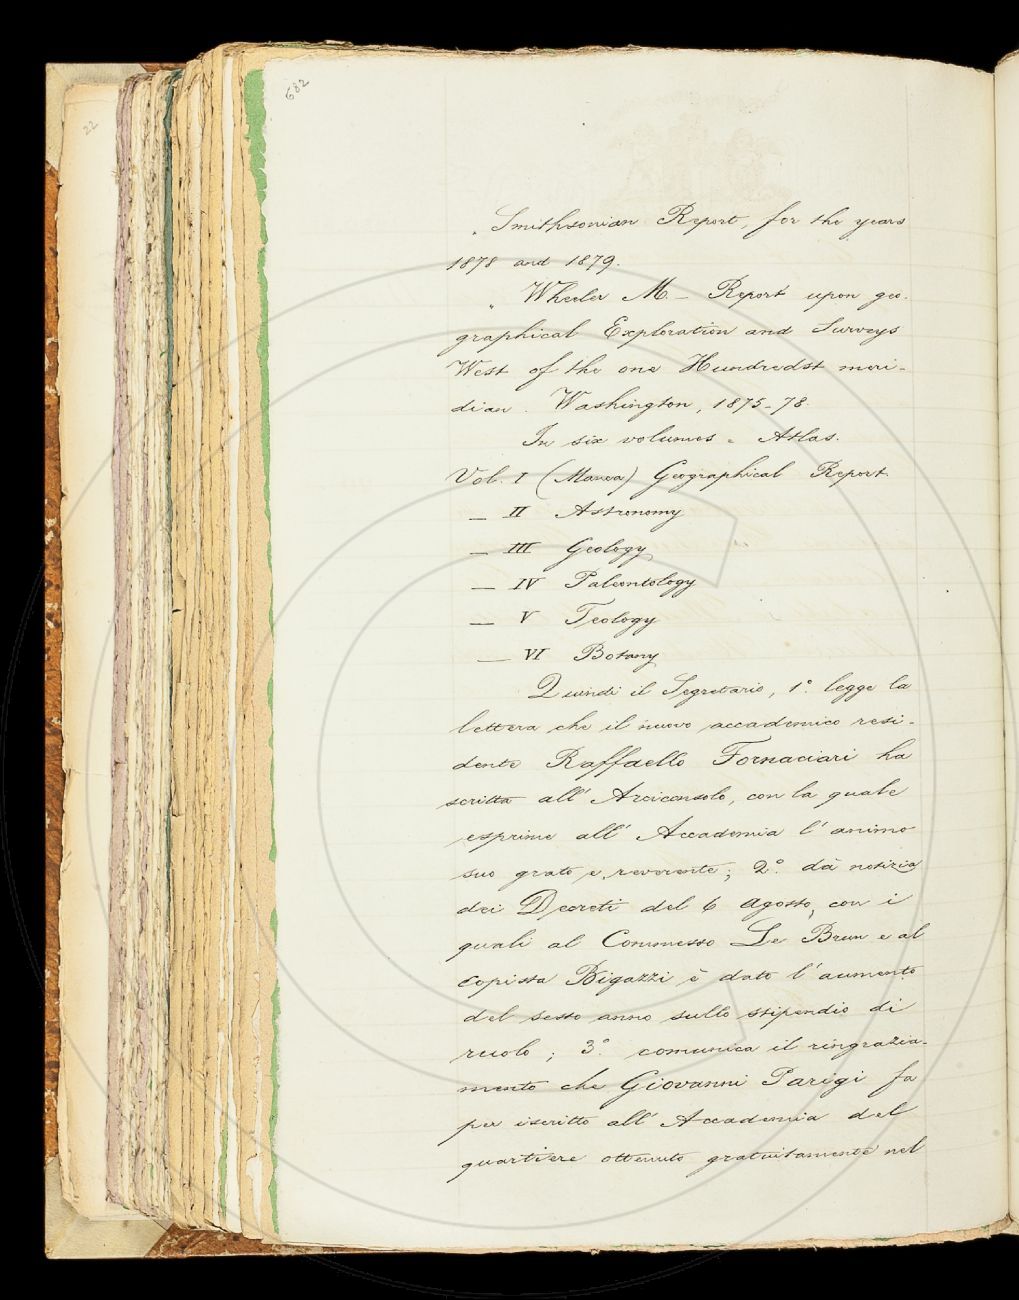 682
22
„ Smithsonian Report, for the years
1878 and 1879.
„ Wheeler M. – Report upon geo-
graphical Exploration and Surveys
West of the one Hundredst meri-
dian. Washington, 1875-78.
In six volumes – Atlas.
Vol. I (Manca) Geographical Report.
— II Astronomy
— III Geology
— IV Paleontology
— V Teology
— VI Botany
Quindi il Segretario, 1.° legge la
lettera che il nuovo accademico resi-
dente Raffaello Fornaciari ha
scritta all' Arciconsolo, con la quale
esprime all' Accademia l' animo
suo grato e reverente; 2.° dà notizia
dei Decreti del 6 Agosto, con i
quali al Commesso Le Brun e al
copista Bigazzi è dato l' aumento
del sesto anno sullo stipendio di
ruolo; 3.° comunica il ringrazia-
mento che Giovanni Parigi fa
per iscritto all' Accademia del
quartiere ottenuto gratuitamente nel